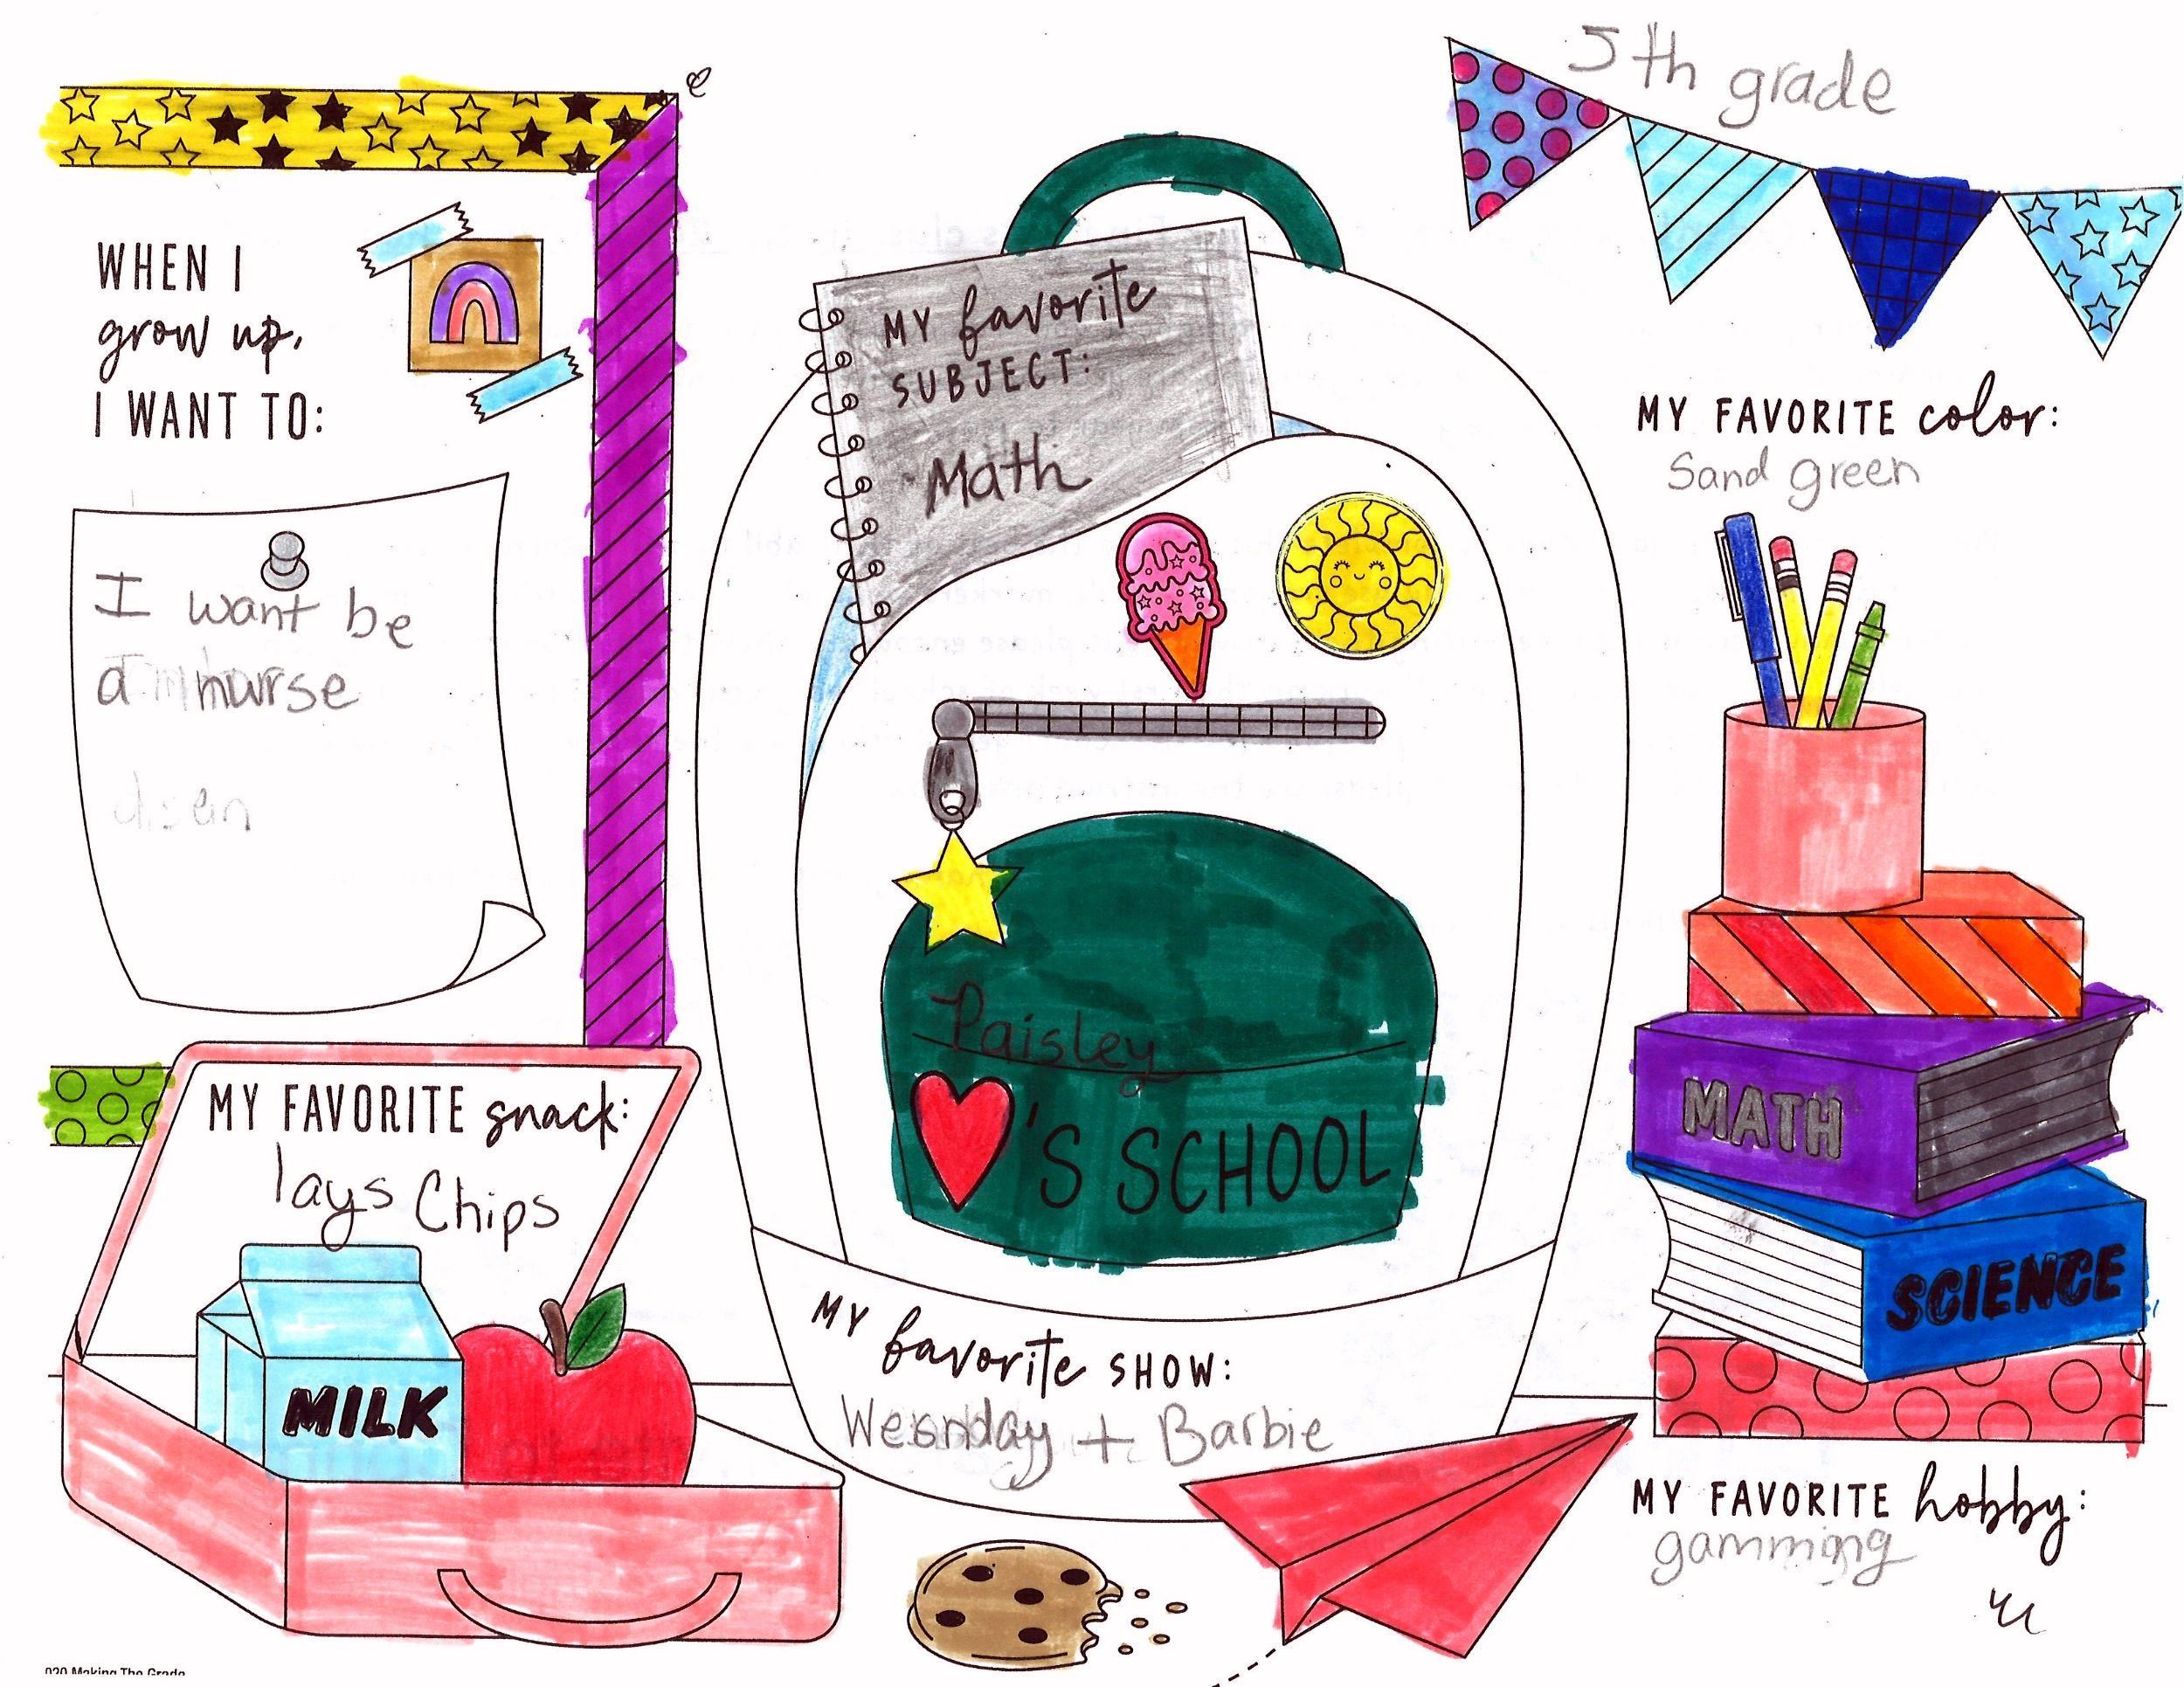 5th grade
WHEN I
grow up,
I WANT TO:
I want be
a nurse
MY favorite
SUBJECT:
Math
MY FAVORITE color:
Sand green
Paisley
'S SCHOOL
MATH
SCIENCE
MY FAVORITE snack:
lays Chips
MILK
MY favorite SHOW:
+ Barbie
MY FAVORITE hobby:
gamming
020 Making The Grade